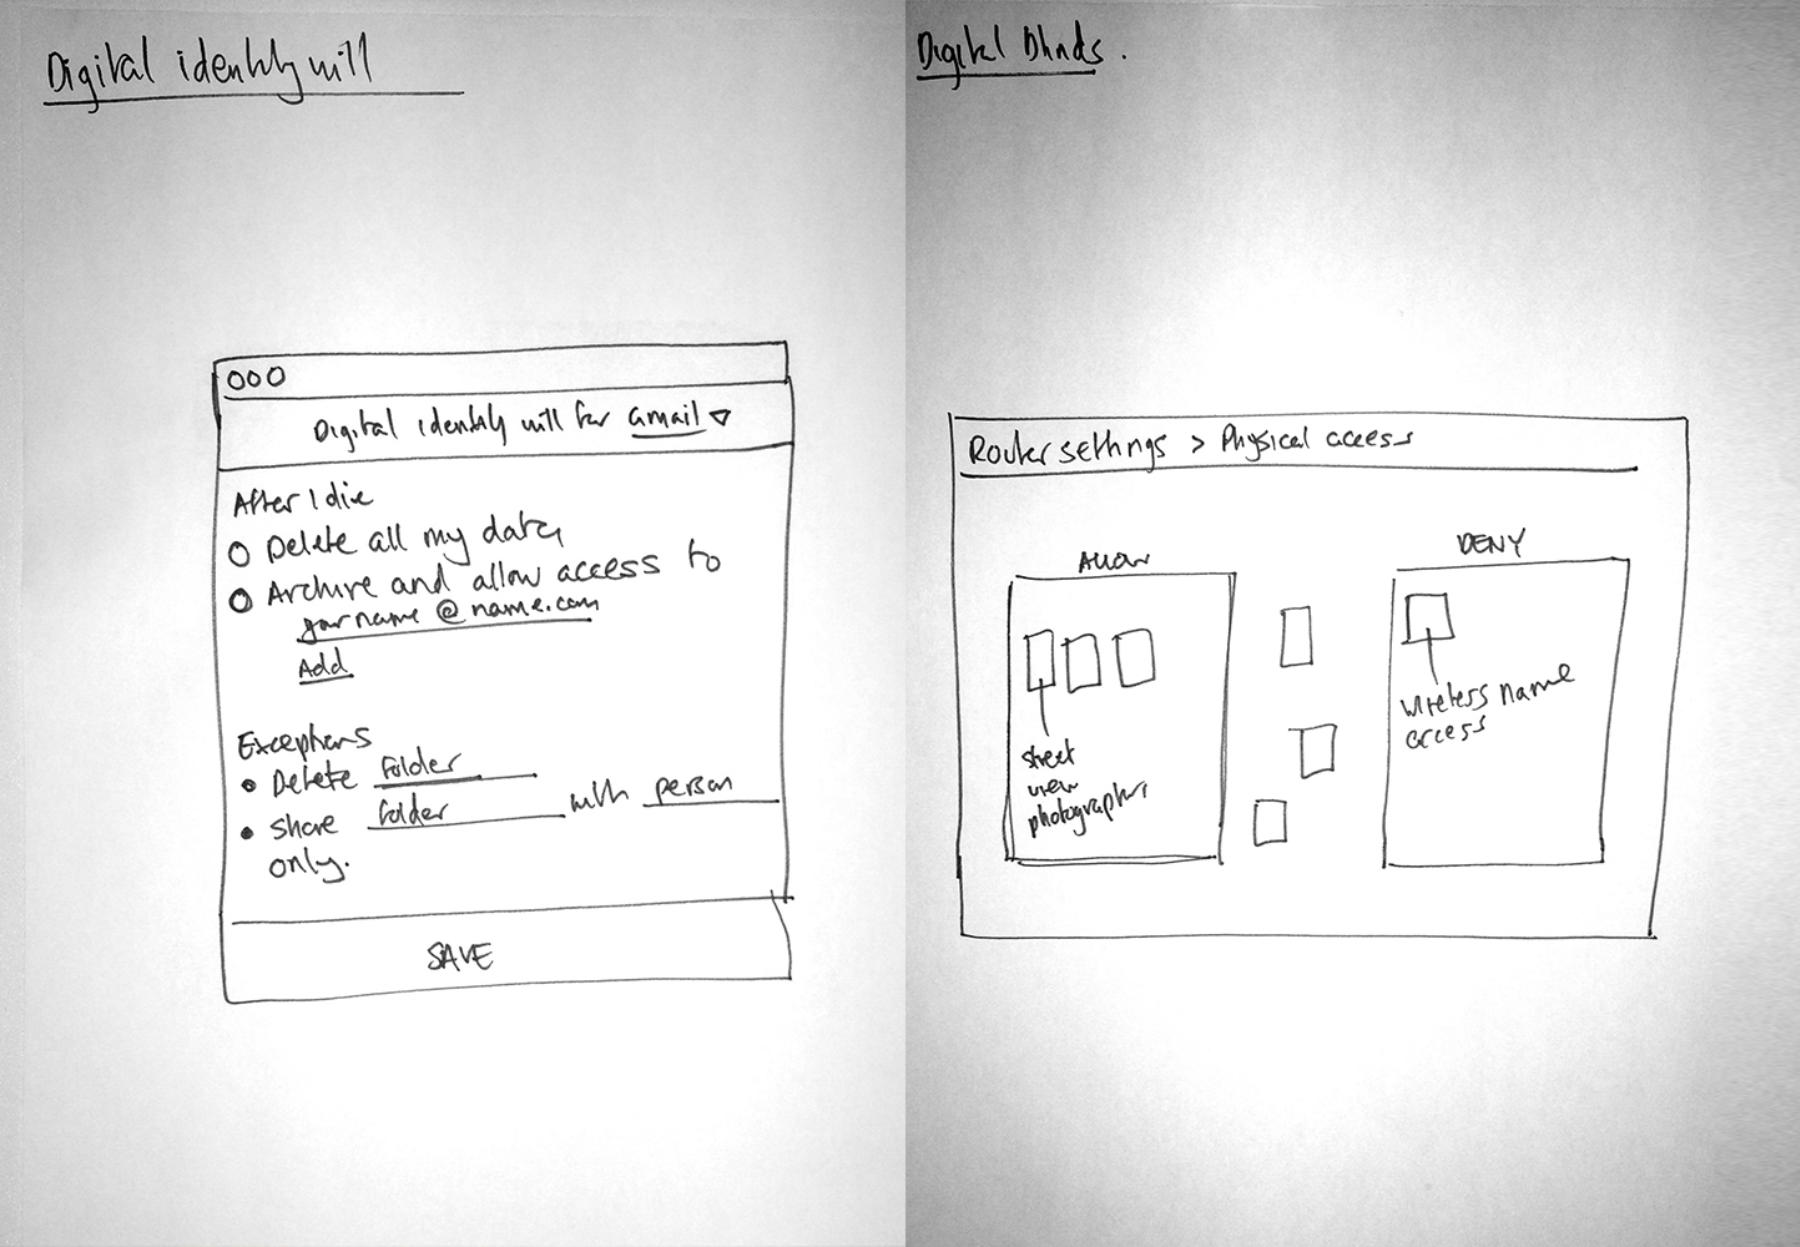 Digital identity will
OOO
Digital identity will for Gmail ▽
After I die
Delete all my data
Archive and allow access to
yourname @ name.com
Add
Exceptions
• Delete folder
• Share folder with person
only.
SAVE
Digital Blinds.
Router settings > Physical access
ALLOW
street
view
photographers
DENY
wireless name
access